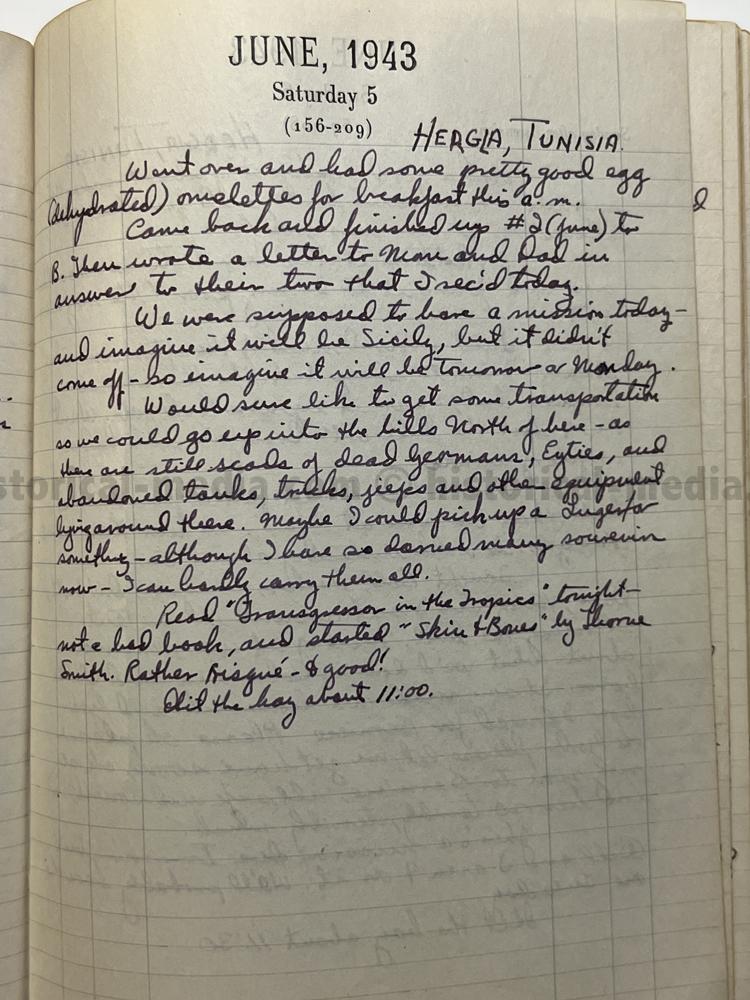 JUNE, 1943
Saturday 5
(156-209)
HERGLA, TUNISIA.
Went over and had some pretty good egg
(dehydrated) omelettes for breakfast this a.m.
Came back and finished up #2 (June) to
B. Then wrote a letter to Mom and Dad in
answer to their two that I rec'd today.
We were supposed to have a mission today-
and imagine it will be Sicily, but it didn't
come off - so imagine it will be tomorrow or Monday.
Would sure like to get some transportation
so we could go up into the hills North of here - as
there are still scads of dead Germans, Eyties, and
abandoned tanks, trucks, jeeps and other equipment
lying around there. Maybe I could pick up a Luger or
something - although I have so darned many souvenirs
now - I can hardly carry them all.
Read "Transgressor in the Tropics" tonight-
not a bad book, and started "Skin & Bones" by Thorne
Smith. Rather risqué - & good!
Hit the hay about 11:00.